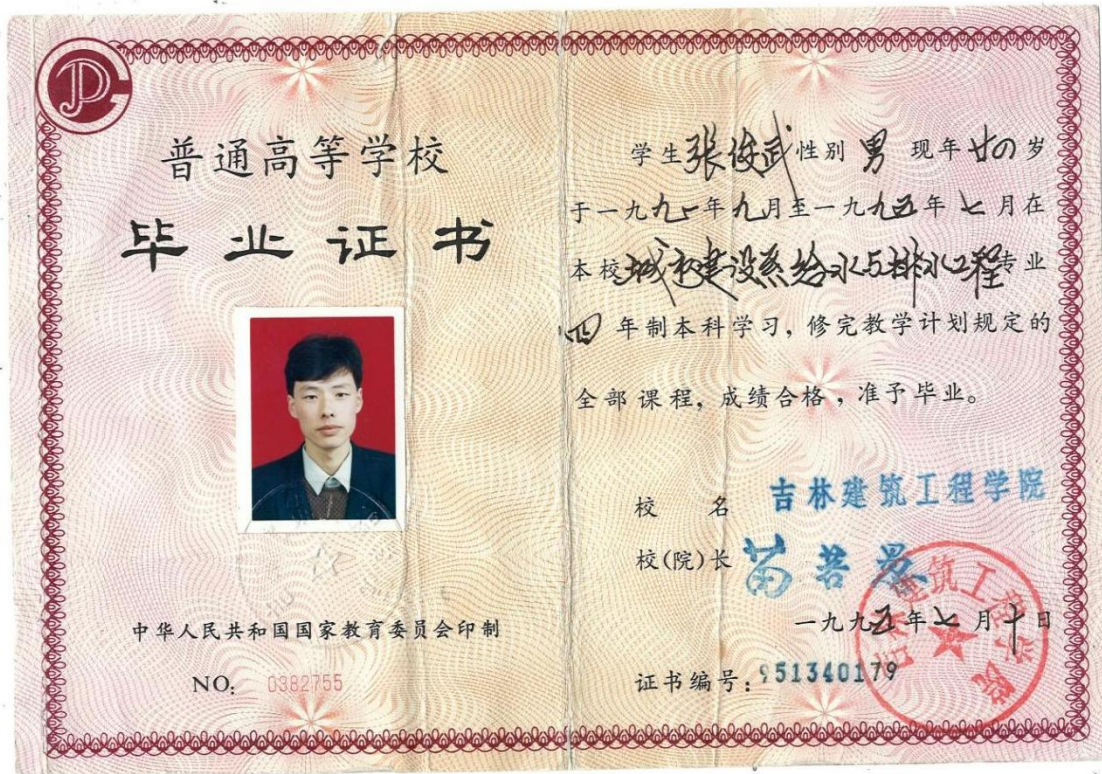 普通高等学校
毕业证书
中华人民共和国国家教育委员会印制
NO: 0382755
学生张俊武性别 男 现年廿四岁
于一九九一年九月至一九九五年七月在
本校城市建设系给水与排水工程专业
四年制本科学习，修完教学计划规定的
全部课程，成绩合格，准予毕业。
校 名 吉林建筑工程学院
校(院)长 苗若愚
一九九五年七月十日
证书编号：951340179
吉林建筑工程学院